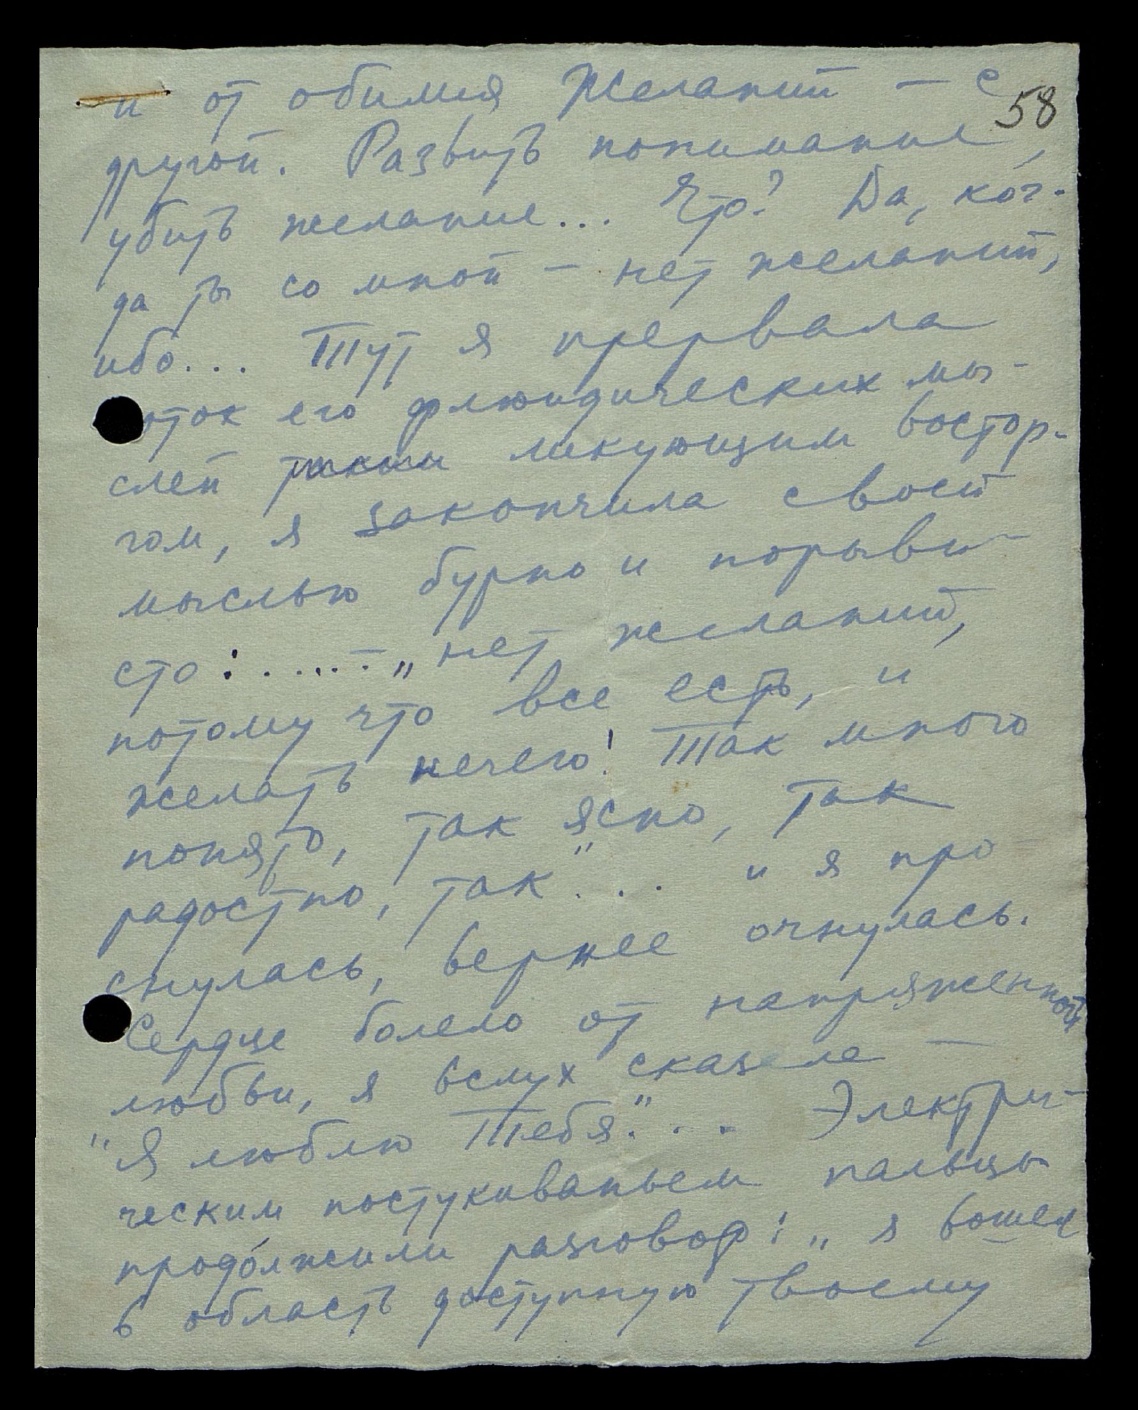 и от обилия желаний — с
58
другой. Развить понимание,
убить желание... Что? Да, ког-
да ты со мной — нет желаний,
ибо... Тут я прервала
поток его флюидических мы-
слей таким ликующим востор-
гом, я закончила своей
мыслью бурно и порыви-
сто: ..... — „нет желаний,
потому что все есть, и
желать нечего! Так много
понято, так ясно, так
радостно, так"... и я про-
снулась, вернее очнулась.
Сердце болело от напряженной
любви, я вслух сказала —
"Я люблю Тебя"... Электри-
ческим постукиваньем пальцы
продолжили разговор: „я вошел
в область доступную твоему